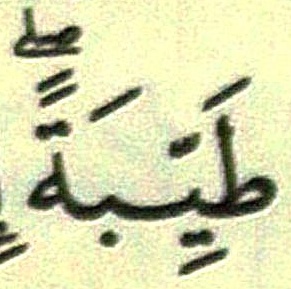 طَيِّبَةًۖ